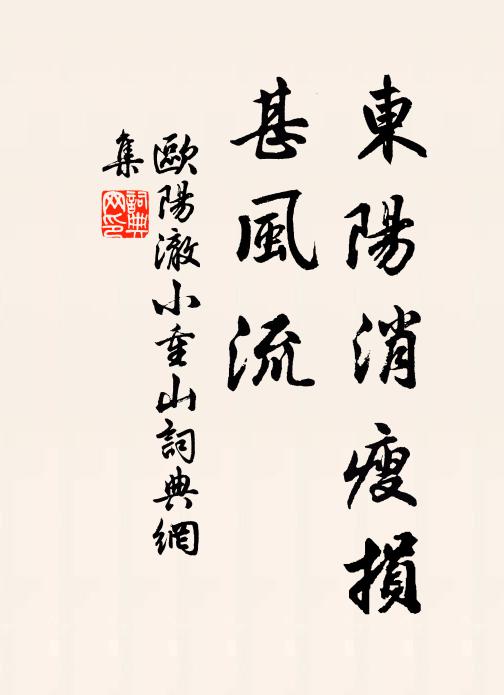 東陽消瘦損
甚風流
歐陽澈小重山詞典網
集
詞典
网印